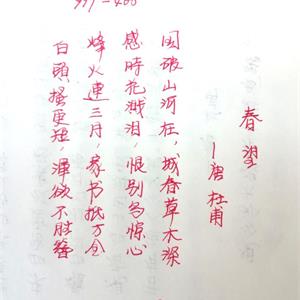 春望
—唐 杜甫
国破山河在,城春草木深
感時花溅泪,恨别鸟惊心
烽火連三月,家书抵万金
白頭搔更短,渾欲不胜簪